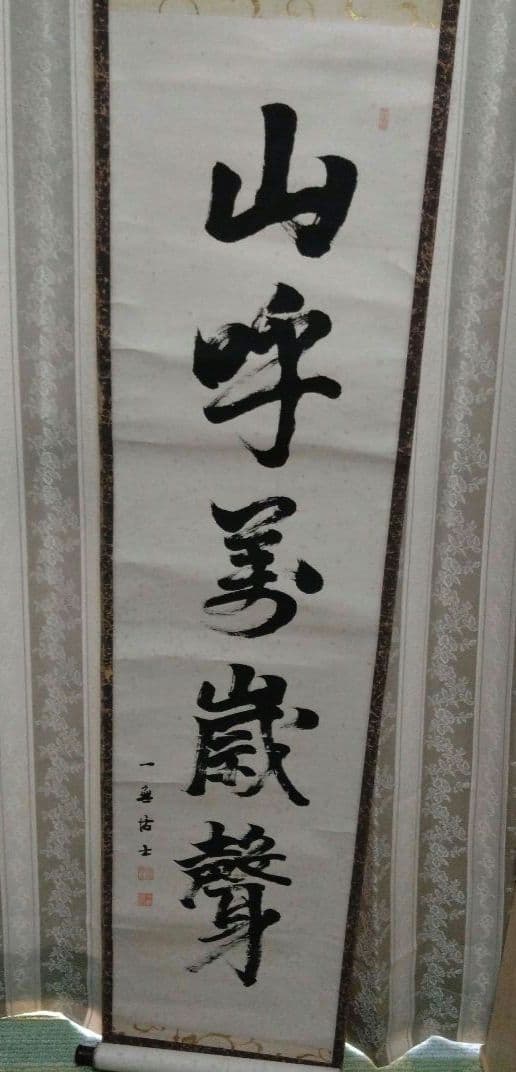 山呼萬歲聲
一無居士